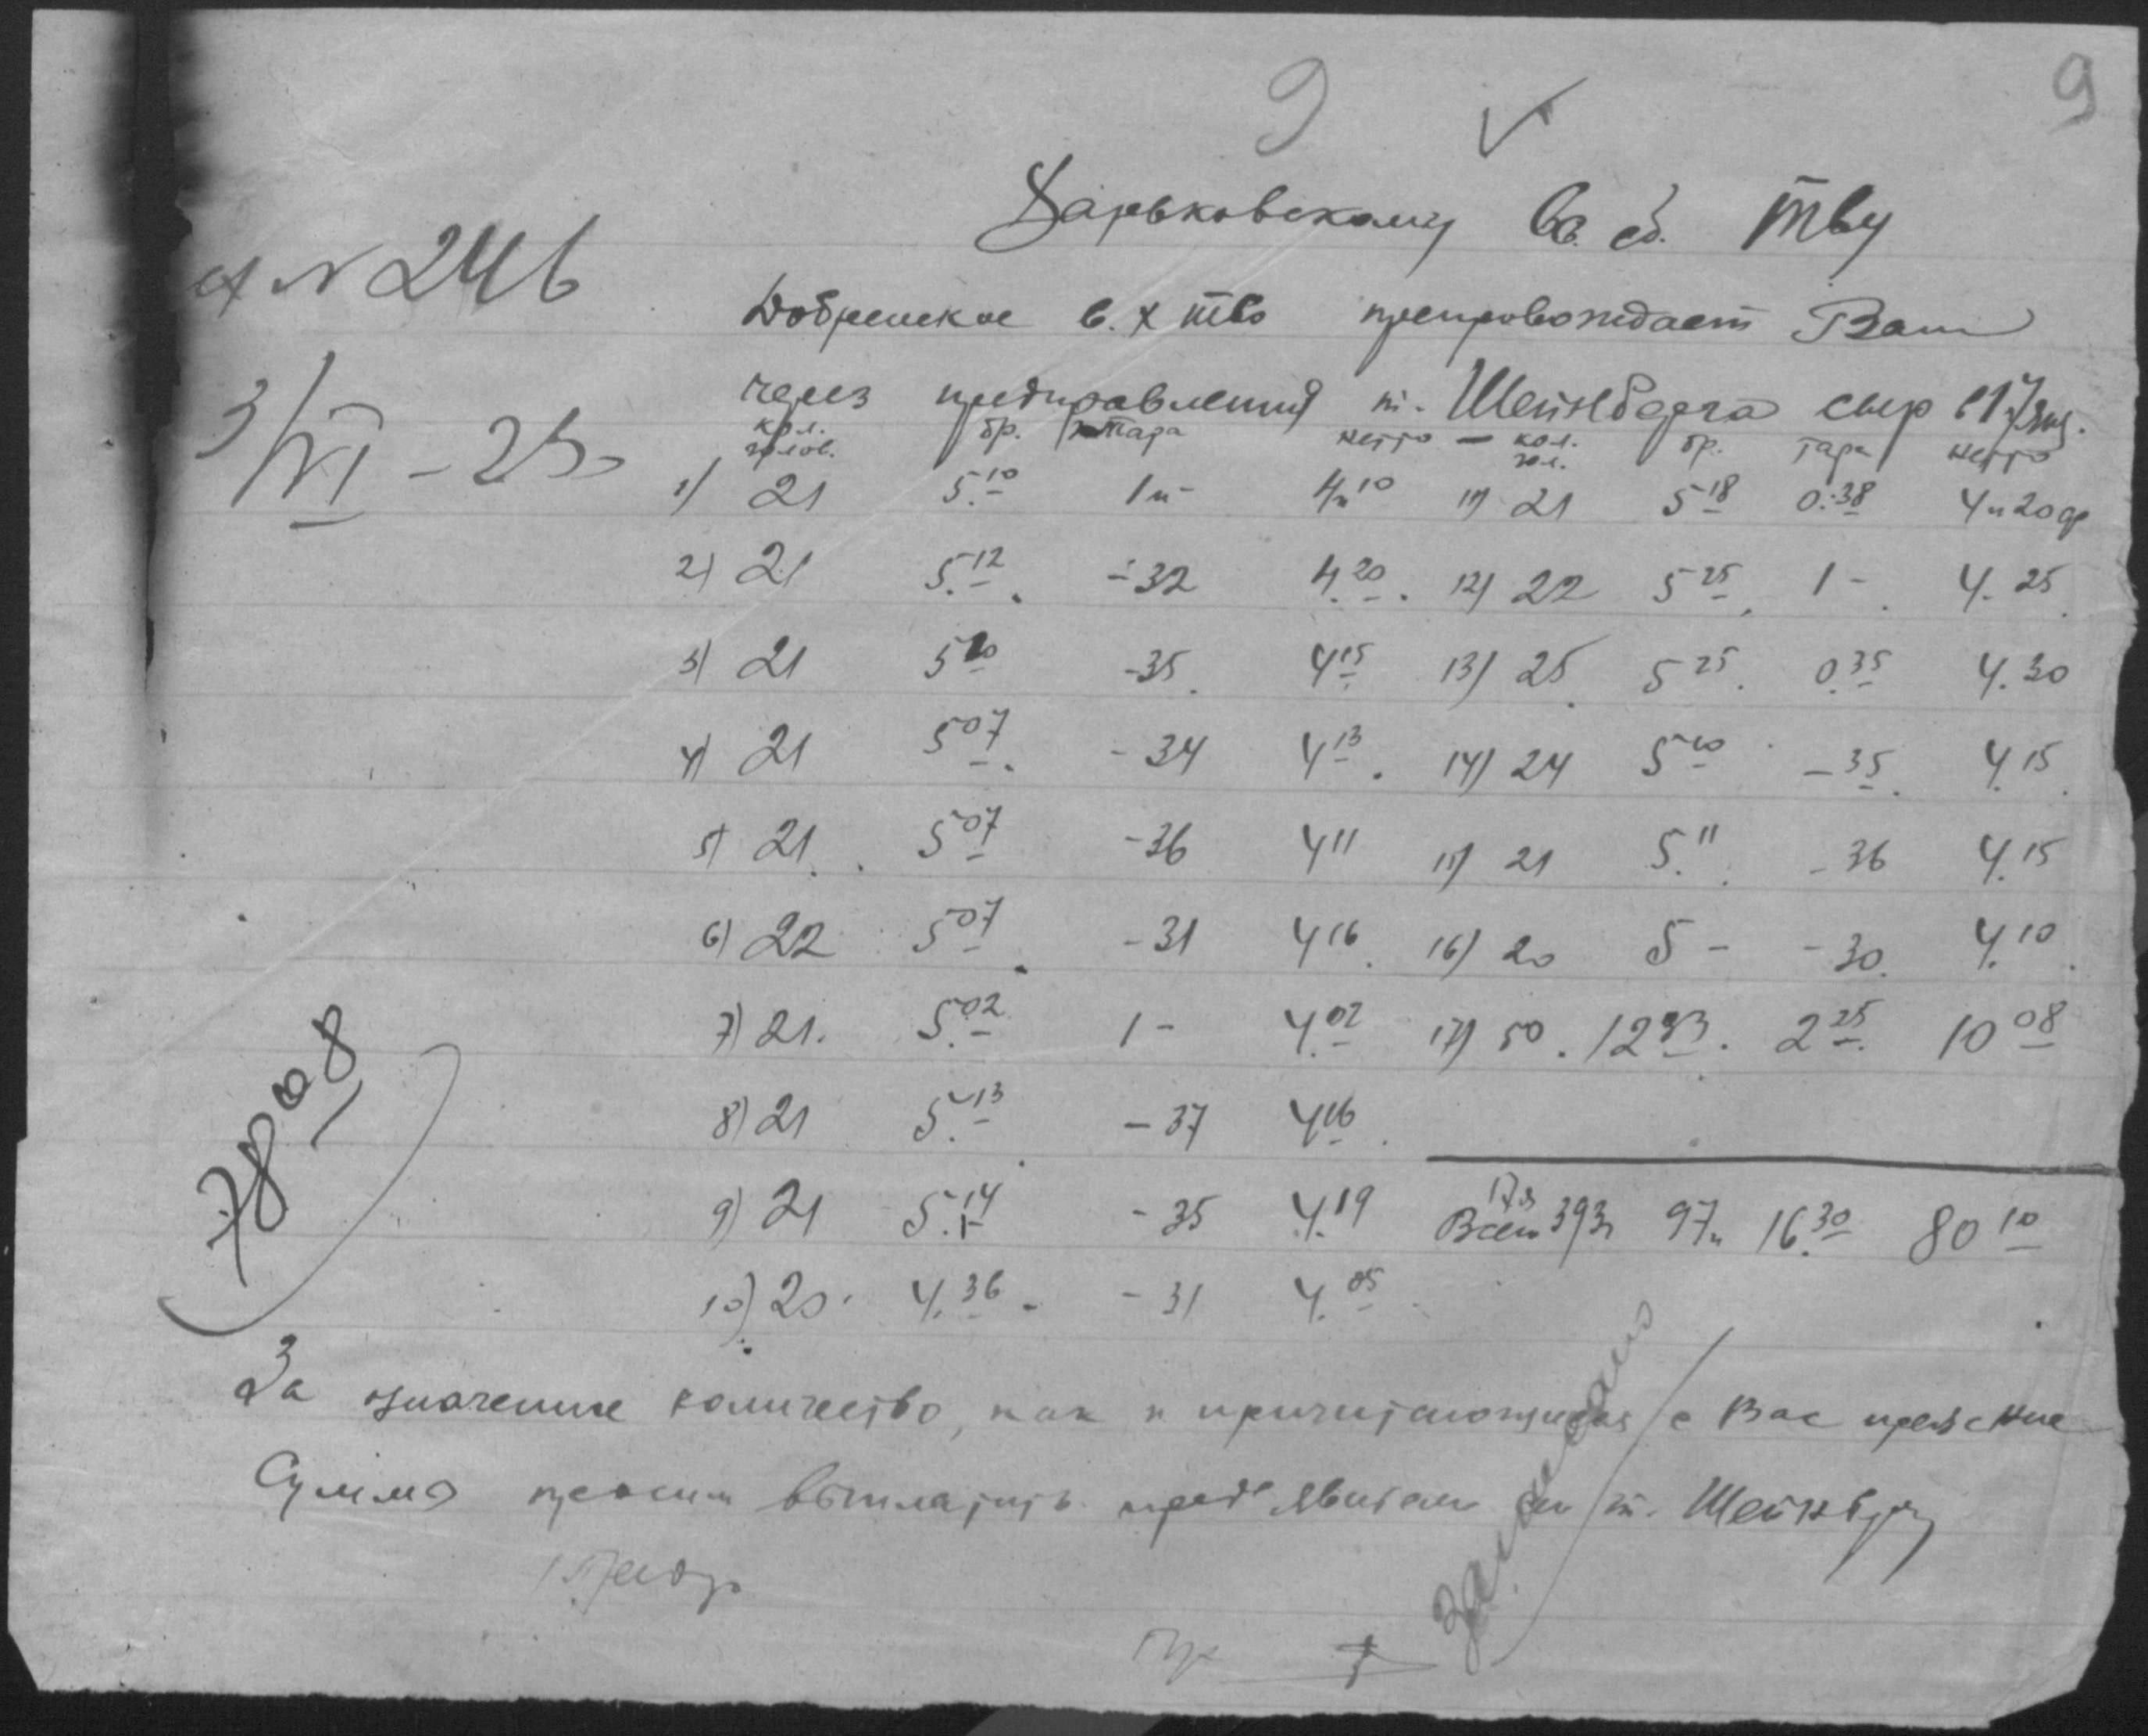 9 9
Харьковскому тву
№ 246
Добренское с.х тво препровождает Вам
3/VI - 25
через предправления т. Шейнберга сыр в 17 ящ.
кол. голов. бр. тара нетто — кол. гол. бр. тара нетто
1) 21 5.10 1п- 4п10 11) 21 5 18 0.38 4п20ф
2) 21 5.12. -32 4.20. 12) 22 5 25. 1-. 4.25
3) 21 5 10 -35. 4 15 13) 25. 5 25. 0.35 4.30
4) 21 5 07. -34 4 13. 14) 24 5 10 -35. 4.15
5) 21. 5 07 -36 4 11 15) 21 5.11. -36 4.15
6) 22 5 07. -31 4 16. 16) 20 5- -30. 4.10.
7) 21. 5.02 1- 4.02 17) 50. 12 33. 2 25. 10 08
8) 21 5.13 -37 4 16.
78 08
9) 21 5.14 -35 4.19 Всего 393 97п 16.30 80 10
10) 20. 4.36. -31 4.05
За означенное количество, как и причитающуюся с Вас прежние
Сумма просим выплатить предъявителю т. Шейнбергу
записано